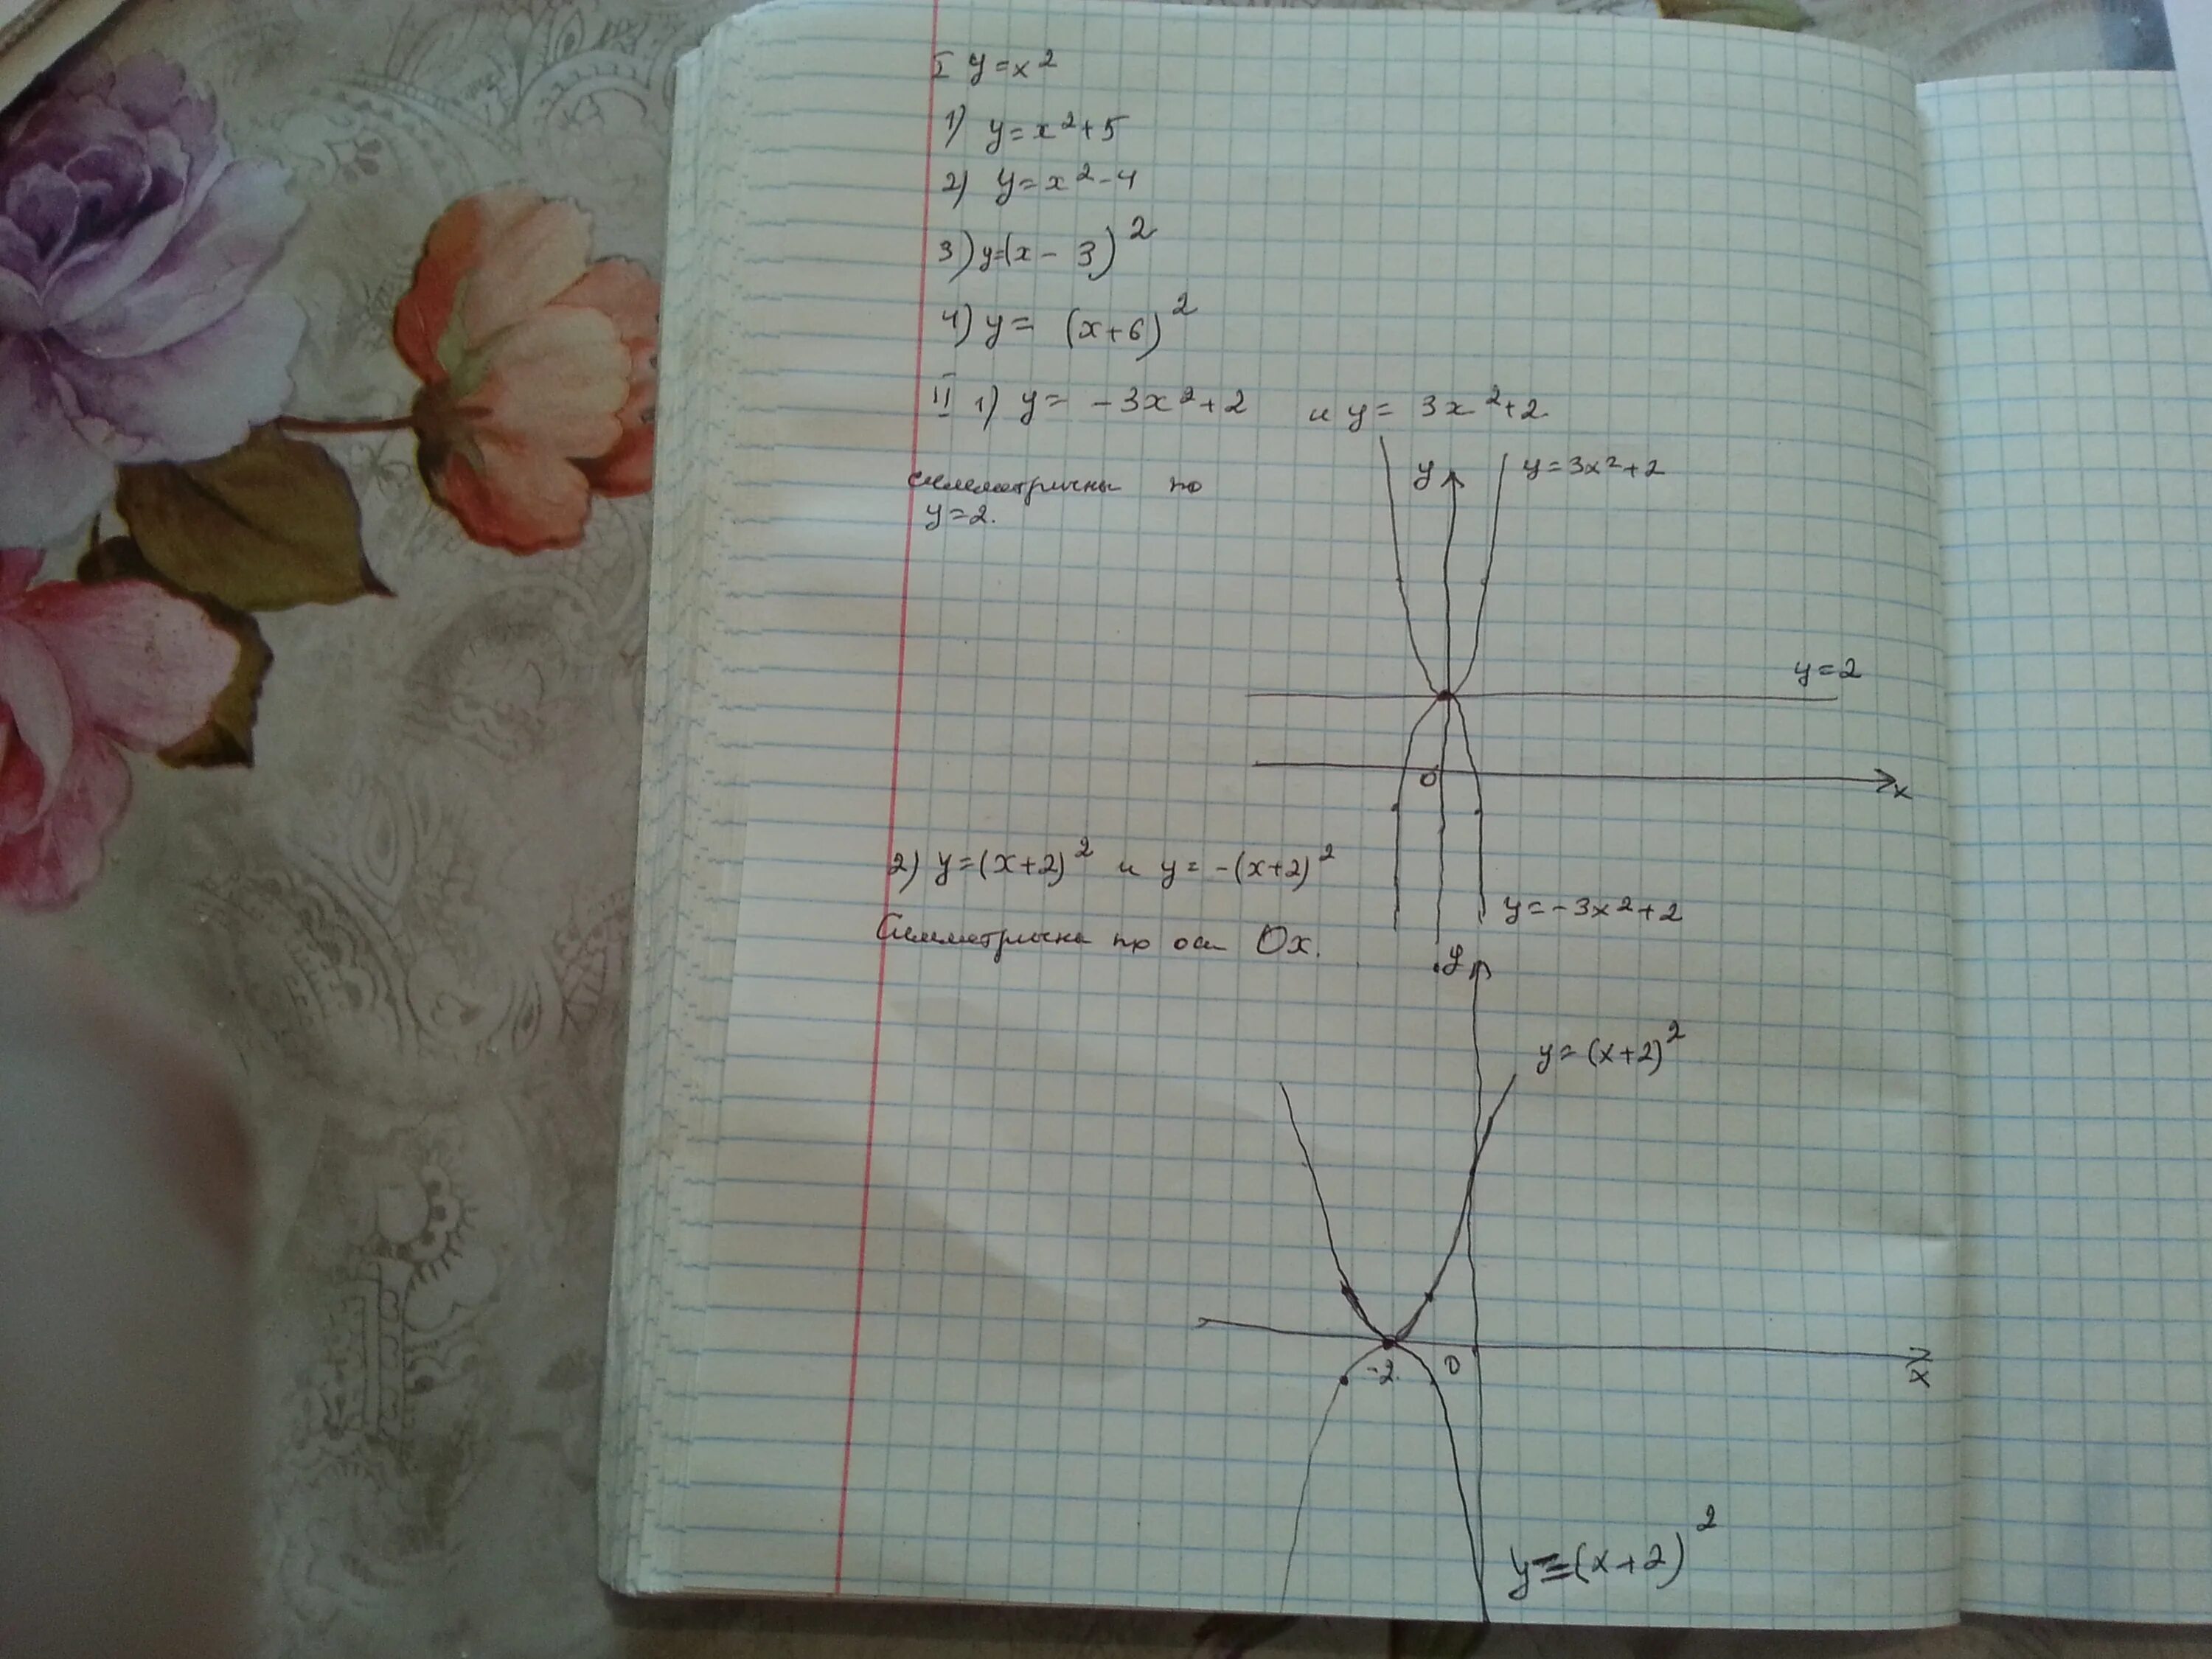 I y = x²
1) y = x² + 5
2) y = x² - 4
3) y = (x - 3)²
4) y = (x + 6)²
II 1) y = -3x² + 2 и y = 3x² + 2
y y = 3x² + 2
симметричны по
y = 2.
y = 2
0 x
2) y = (x+2)² и y = -(x+2)²
y = -3x² + 2
Симметричны по оси Ox.
y
y = (x+2)²
-2 0 x
y = -(x+2)²